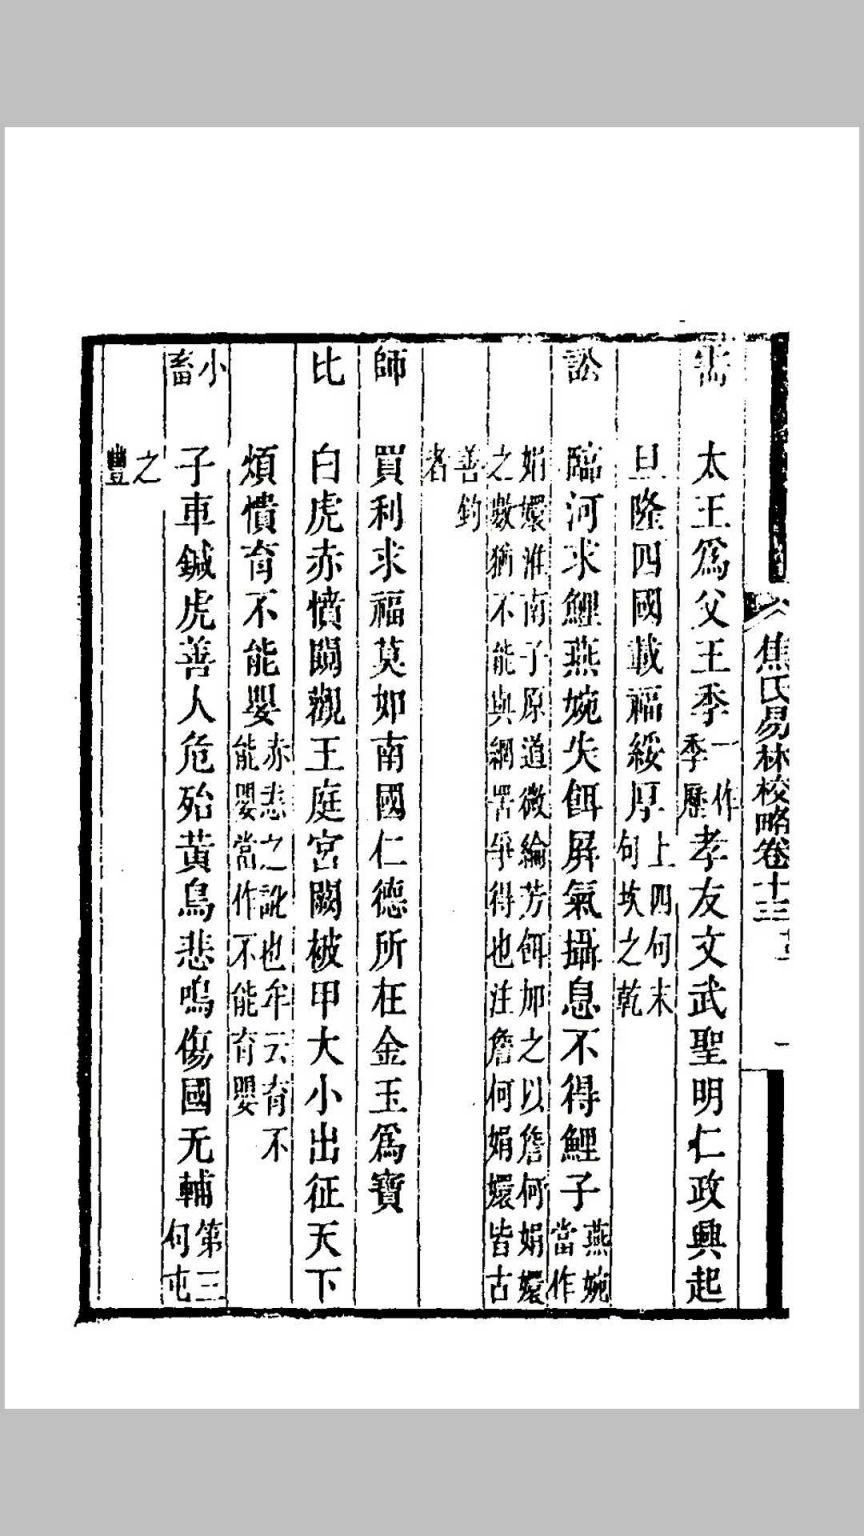 焦氏易林校略卷十三
需　太王爲父王季一作季歷孝友文武聖明仁政興起
旦隆四國載福綏厚上四句末句坎之乾
訟　臨河求鯉燕婉失餌屏氣攝息不得鯉子燕婉當作
娟嬛淮南子原道微綸芳餌加之以詹何娟嬛之數猶不能與網罟爭得也注詹何娟嬛皆古
善釣者
師　買利求福莫如南國仁德所在金玉爲寶
比　白虎赤憤闚觀王庭宮闕被甲大小出征天下
煩憒育不能嬰赤悲之訛也牟云育不能嬰當作不能育嬰
小畜　子車鍼虎善人危殆黃鳥悲鳴傷國无輔第三句屯
之豐